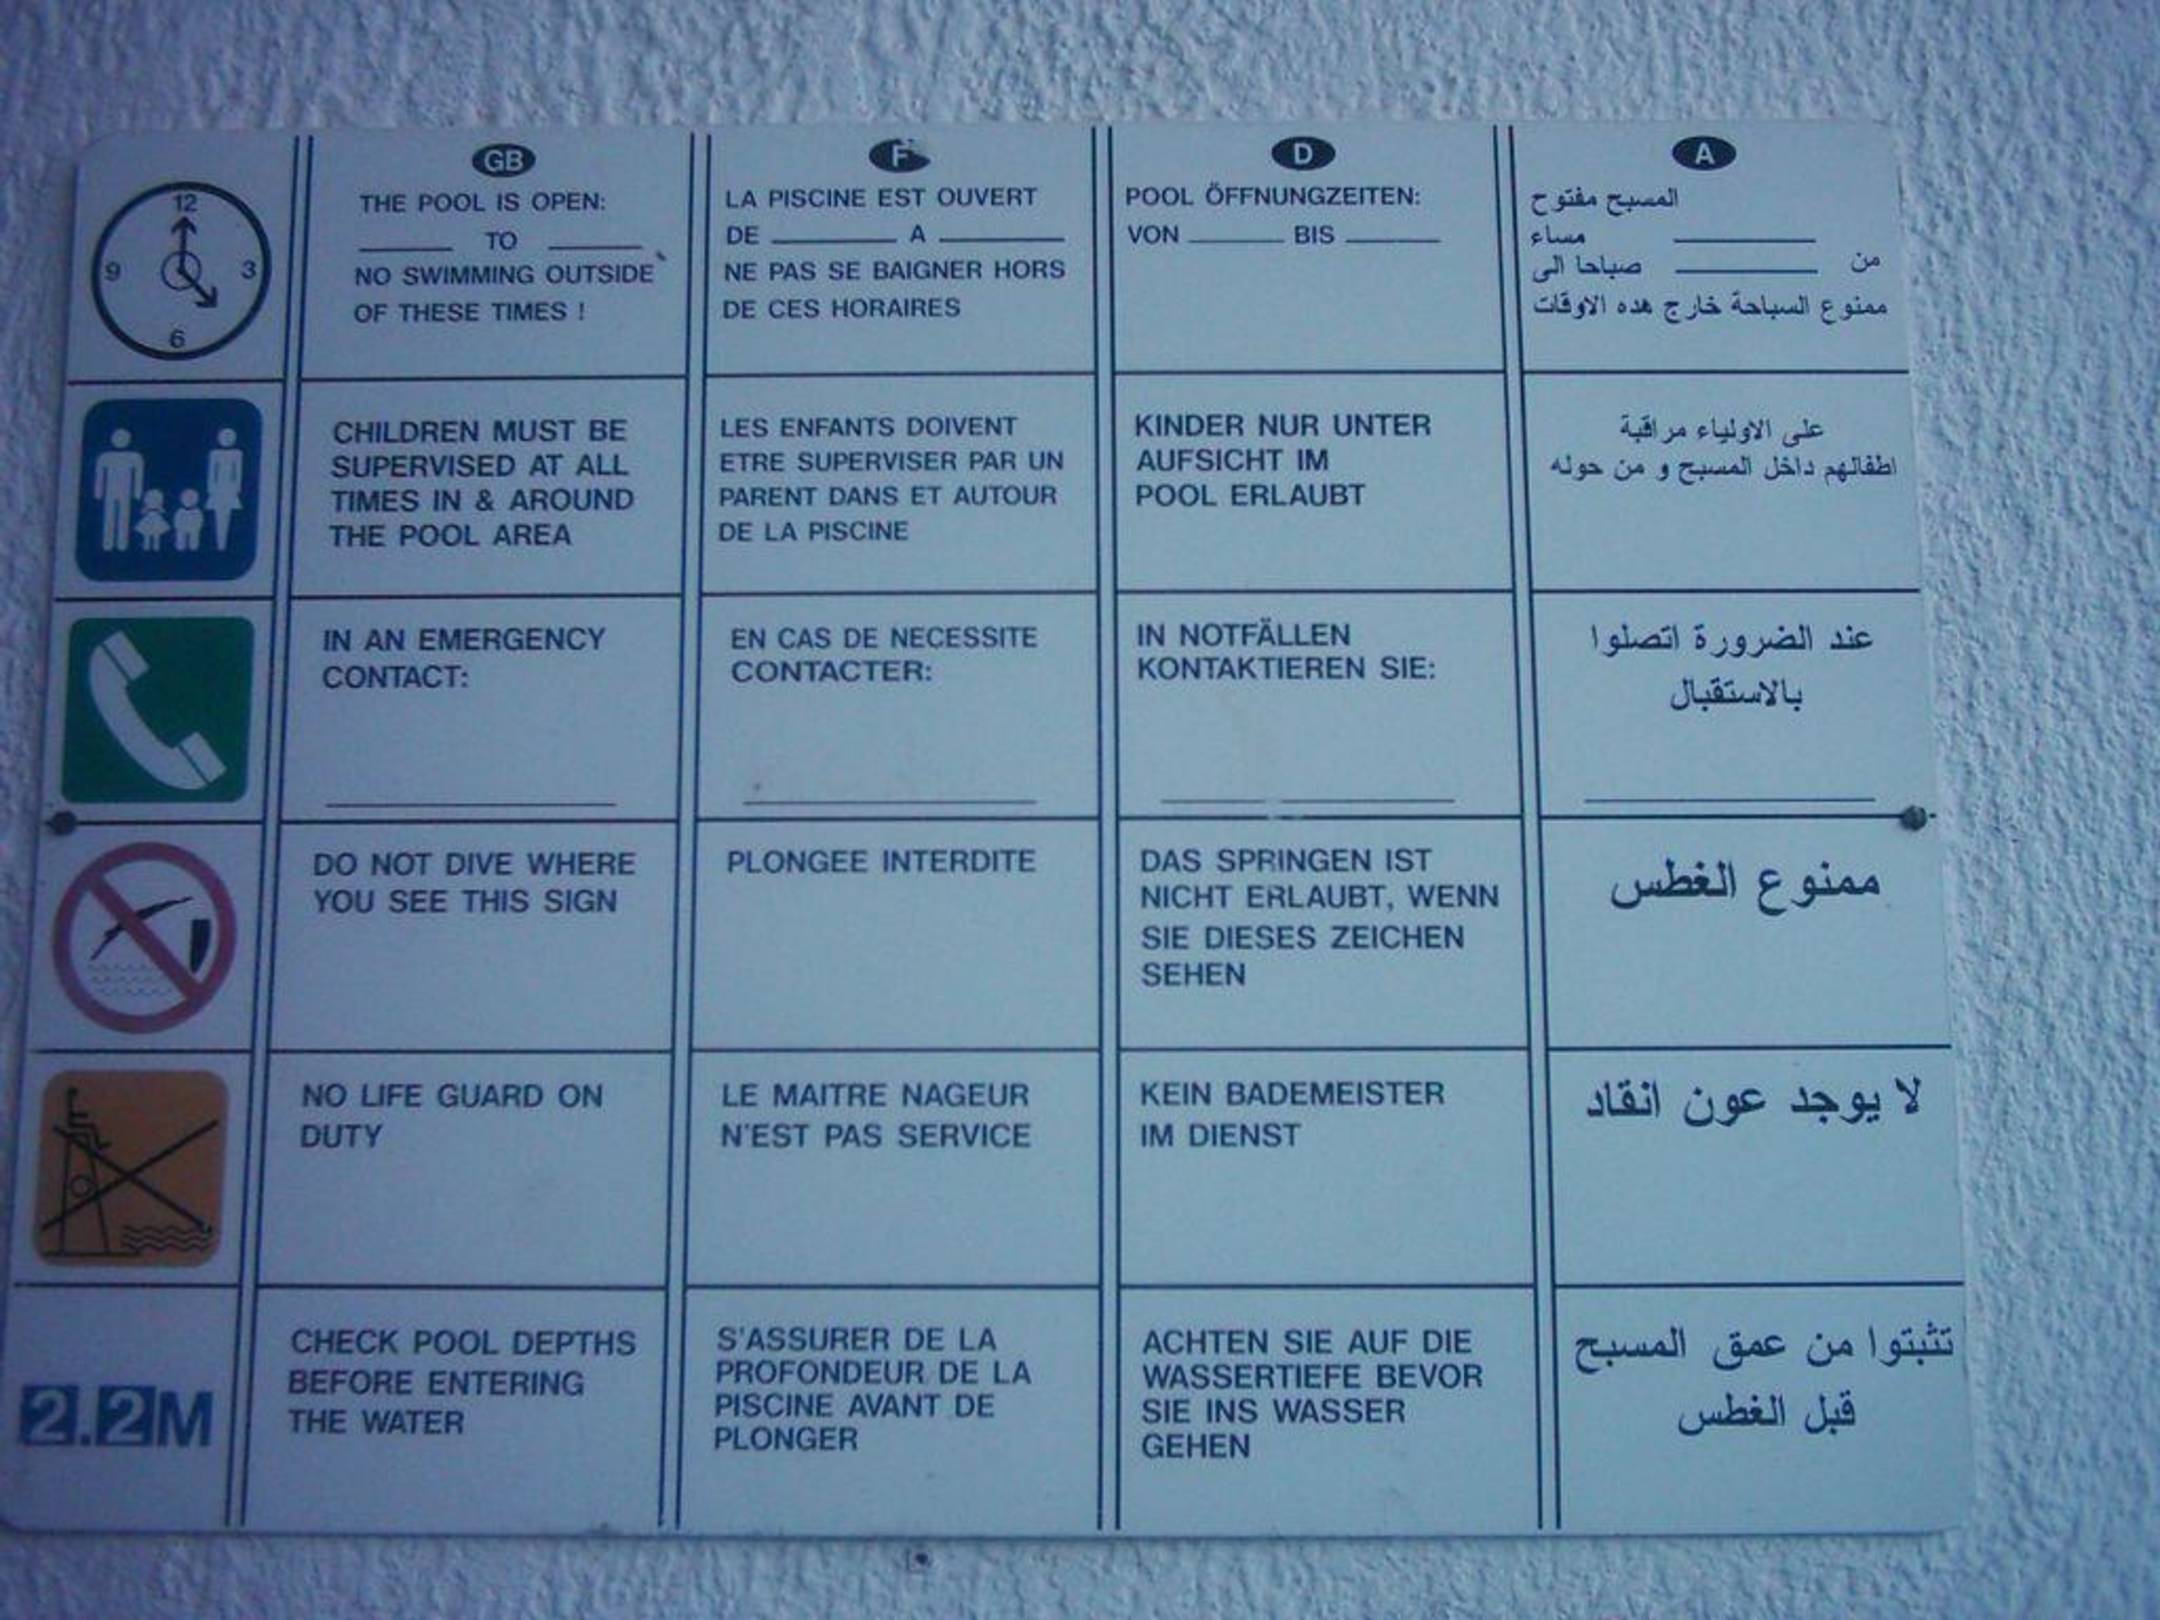 12
9 3
6
GB
THE POOL IS OPEN:
____ TO ____
NO SWIMMING OUTSIDE
OF THESE TIMES !
F
LA PISCINE EST OUVERT
DE ____ A ____
NE PAS SE BAIGNER HORS
DE CES HORAIRES
D
POOL ÖFFNUNGZEITEN:
VON ____ BIS ____
A
المسبح مفتوح
____ مساء
من ____ صباحا الى
ممنوع السباحة خارج هده الاوقات
CHILDREN MUST BE
SUPERVISED AT ALL
TIMES IN & AROUND
THE POOL AREA
LES ENFANTS DOIVENT
ETRE SUPERVISER PAR UN
PARENT DANS ET AUTOUR
DE LA PISCINE
KINDER NUR UNTER
AUFSICHT IM
POOL ERLAUBT
على الاولياء مراقبة
اطفالهم داخل المسبح و من حوله
IN AN EMERGENCY
CONTACT:
EN CAS DE NECESSITE
CONTACTER:
IN NOTFÄLLEN
KONTAKTIEREN SIE:
عند الضرورة اتصلوا
بالاستقبال
DO NOT DIVE WHERE
YOU SEE THIS SIGN
PLONGEE INTERDITE
DAS SPRINGEN IST
NICHT ERLAUBT, WENN
SIE DIESES ZEICHEN
SEHEN
ممنوع الغطس
NO LIFE GUARD ON
DUTY
LE MAITRE NAGEUR
N'EST PAS SERVICE
KEIN BADEMEISTER
IM DIENST
لا يوجد عون انقاد
2.2M
CHECK POOL DEPTHS
BEFORE ENTERING
THE WATER
S'ASSURER DE LA
PROFONDEUR DE LA
PISCINE AVANT DE
PLONGER
ACHTEN SIE AUF DIE
WASSERTIEFE BEVOR
SIE INS WASSER
GEHEN
تثبتوا من عمق المسبح
قبل الغطس